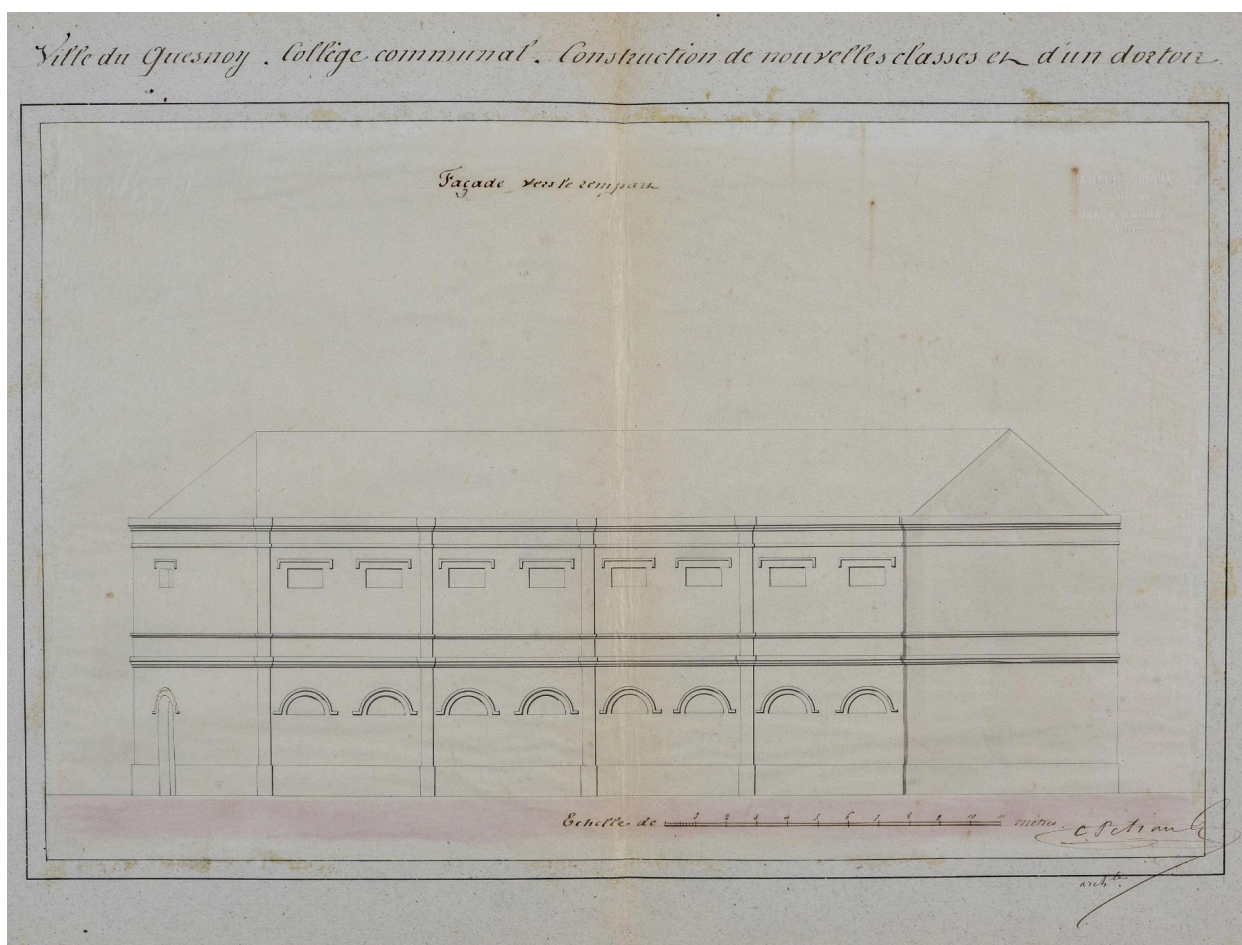 Ville du Quesnoy. Collège communal. Construction de nouvelles classes et d'un dortoir.
Façade vers le rempart
Echelle de 1 2 3 4 5 6 7 8 9 10 11 mètres
archte.